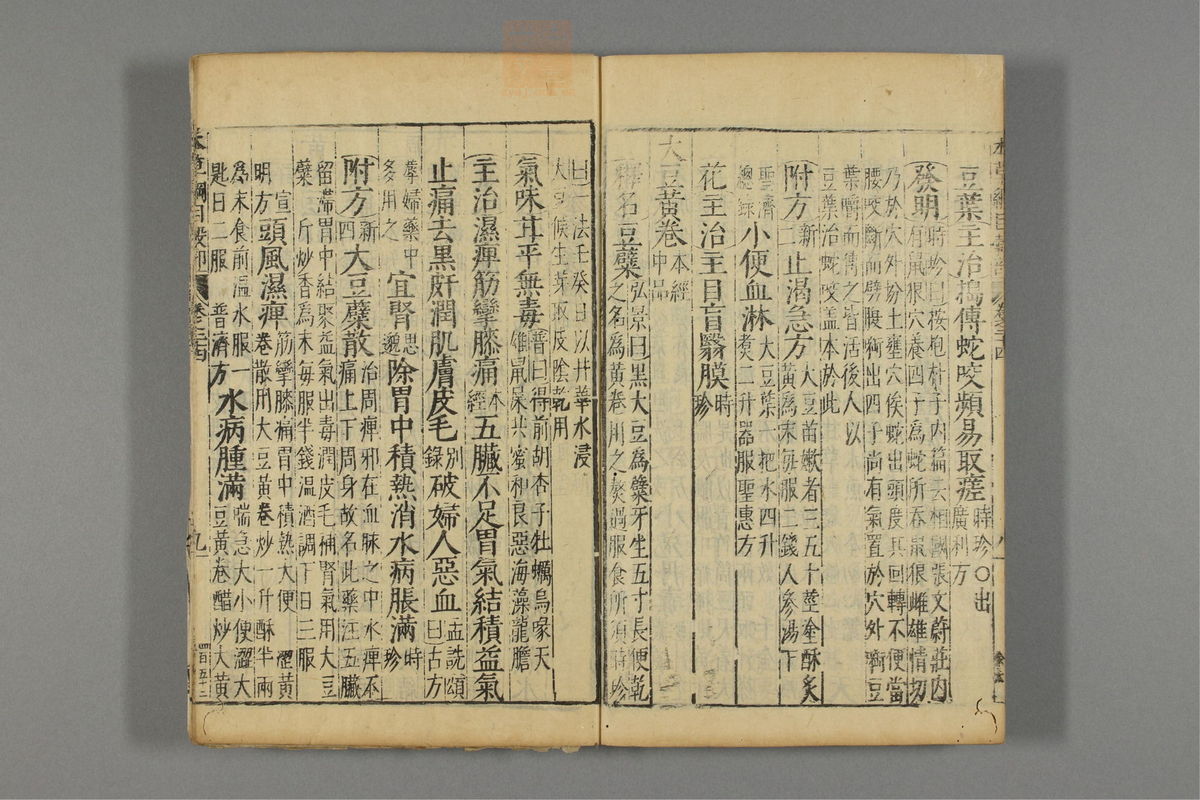 豆葉主治搗傅蛇咬頻易取瘥時珍○出廣利方
發明時珍曰按抱朴子內篇云相國張文蔚莊內
有鼠狼穴養四子為蛇所吞鼠狼雌雄情切
乃於穴外坋土壅穴俟蛇出頭度其回轉不便當
腰咬斷而劈腹銜出四子尚有氣置於穴外銜豆
葉嚼而傅之皆活後人以
豆葉治蛇咬蓋本於此
附方新二止渴急方大豆苗嫩者三五十莖塗酥炙
黃為末每服二錢人參湯下
聖濟總錄小便血淋大豆葉一把水四升
煮二升頓服聖惠方
花主治主目盲翳膜時珍
大豆黃卷本經中品
釋名豆蘗弘景曰黑大豆為蘗牙生五寸長便乾
之名為黃卷用之熬過服食所須時珍
曰一法壬癸日以井華水浸
大豆候生芽取皮陰乾用
氣味甘平無毒普曰得前胡杏子牡蠣烏喙天
雄鼠屎共蜜和良惡海藻龍膽
主治濕痺筋攣膝痛本經五臟不足胃氣結積益氣
止痛去黑皯潤肌膚皮毛別錄破婦人惡血孟詵頌曰古方
蓐婦藥中多用之宜腎思邈除胃中積熱消水病脹滿時珍
附方新四大豆蘗散治周痺邪在血脉之中水痺不
痛上下周身故名此藥注五臟
留滯胃中結聚益氣出毒潤皮毛補腎氣用大豆
蘗一斤炒香為末每服半錢溫酒調下日三服
宣明方頭風濕痺筋攣膝痛胃中積熱大便澀黃
卷散用大豆黃卷炒一升酥半兩
為末食前溫水服一匙日二服普濟方水病腫滿喘急大小便澀大
豆黃卷醋炒大黃